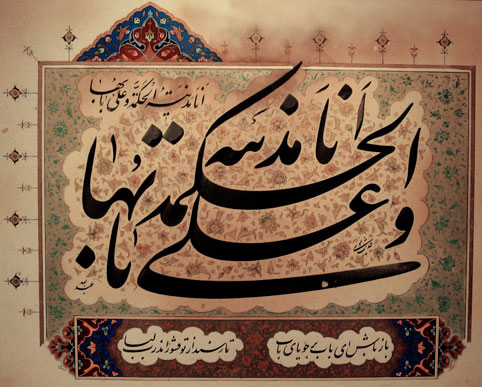 انا مدینة الحکمة و علی بابها
انا مدینة الحکمة و علی بابها
باز باش ای باب بر جویای باب
تا رسند از تو قشور اندر لباب